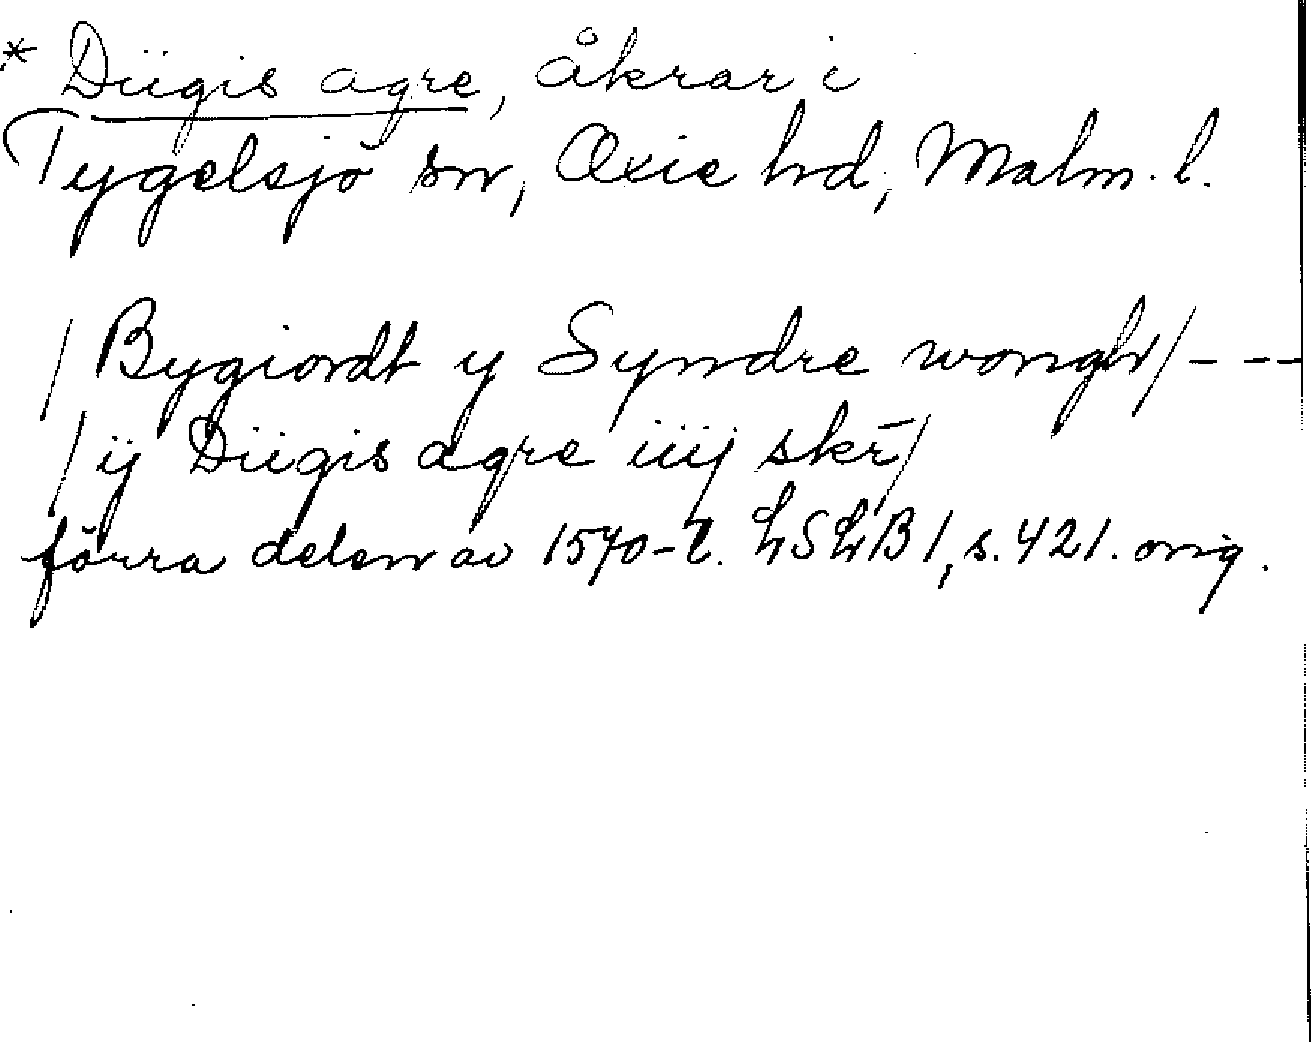 * Diigis agre, åkrar i
Tygelsjö sn, Oxie hd, Malm. l.
/Bygiordt y Syndre wongh/- - -
/ij Diigis agre iiij skr̄/
förra delen av 1570-t. LSLB 1, s. 421. orig.